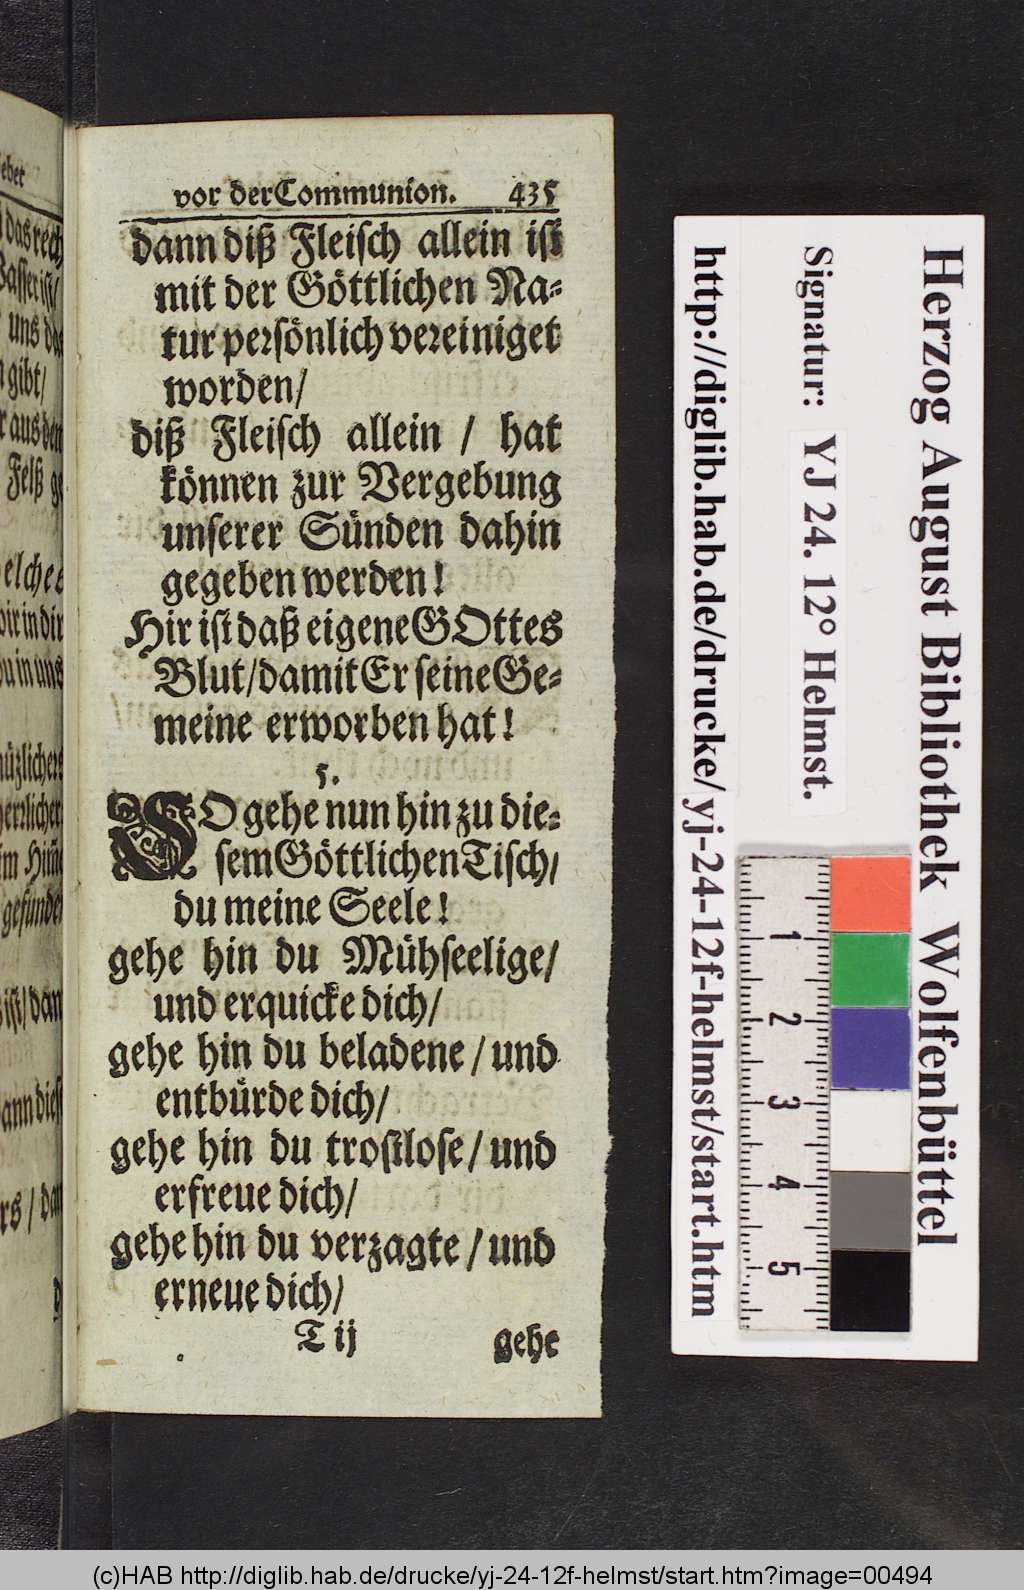 vor der Communion. 435
dann diß Fleisch allein ist
mit der Göttlichen Na-
tur persönlich vereiniget
worden/
diß Fleisch allein / hat
können zur Vergebung
unserer Sünden dahin
gegeben werden!
Hir ist daß eigene GOttes
Blut/damit Er seine Ge-
meine erworben hat!
5.
SO gehe nun hin zu die-
sem Göttlichen Tisch/
du meine Seele!
gehe hin du Mühseelige/
und erquicke dich/
gehe hin du beladene / und
entbürde dich/
gehe hin du trostlose / und
erfreue dich/
gehe hin du verzagte / und
erneue dich/
T ij gehe
Herzog August Bibliothek Wolfenbüttel
Signatur: YJ 24. 12° Helmst.
http://diglib.hab.de/drucke/yj-24-12f-helmst/start.htm
1
2
3
4
5
(c)HAB http://diglib.hab.de/drucke/yj-24-12f-helmst/start.htm?image=00494